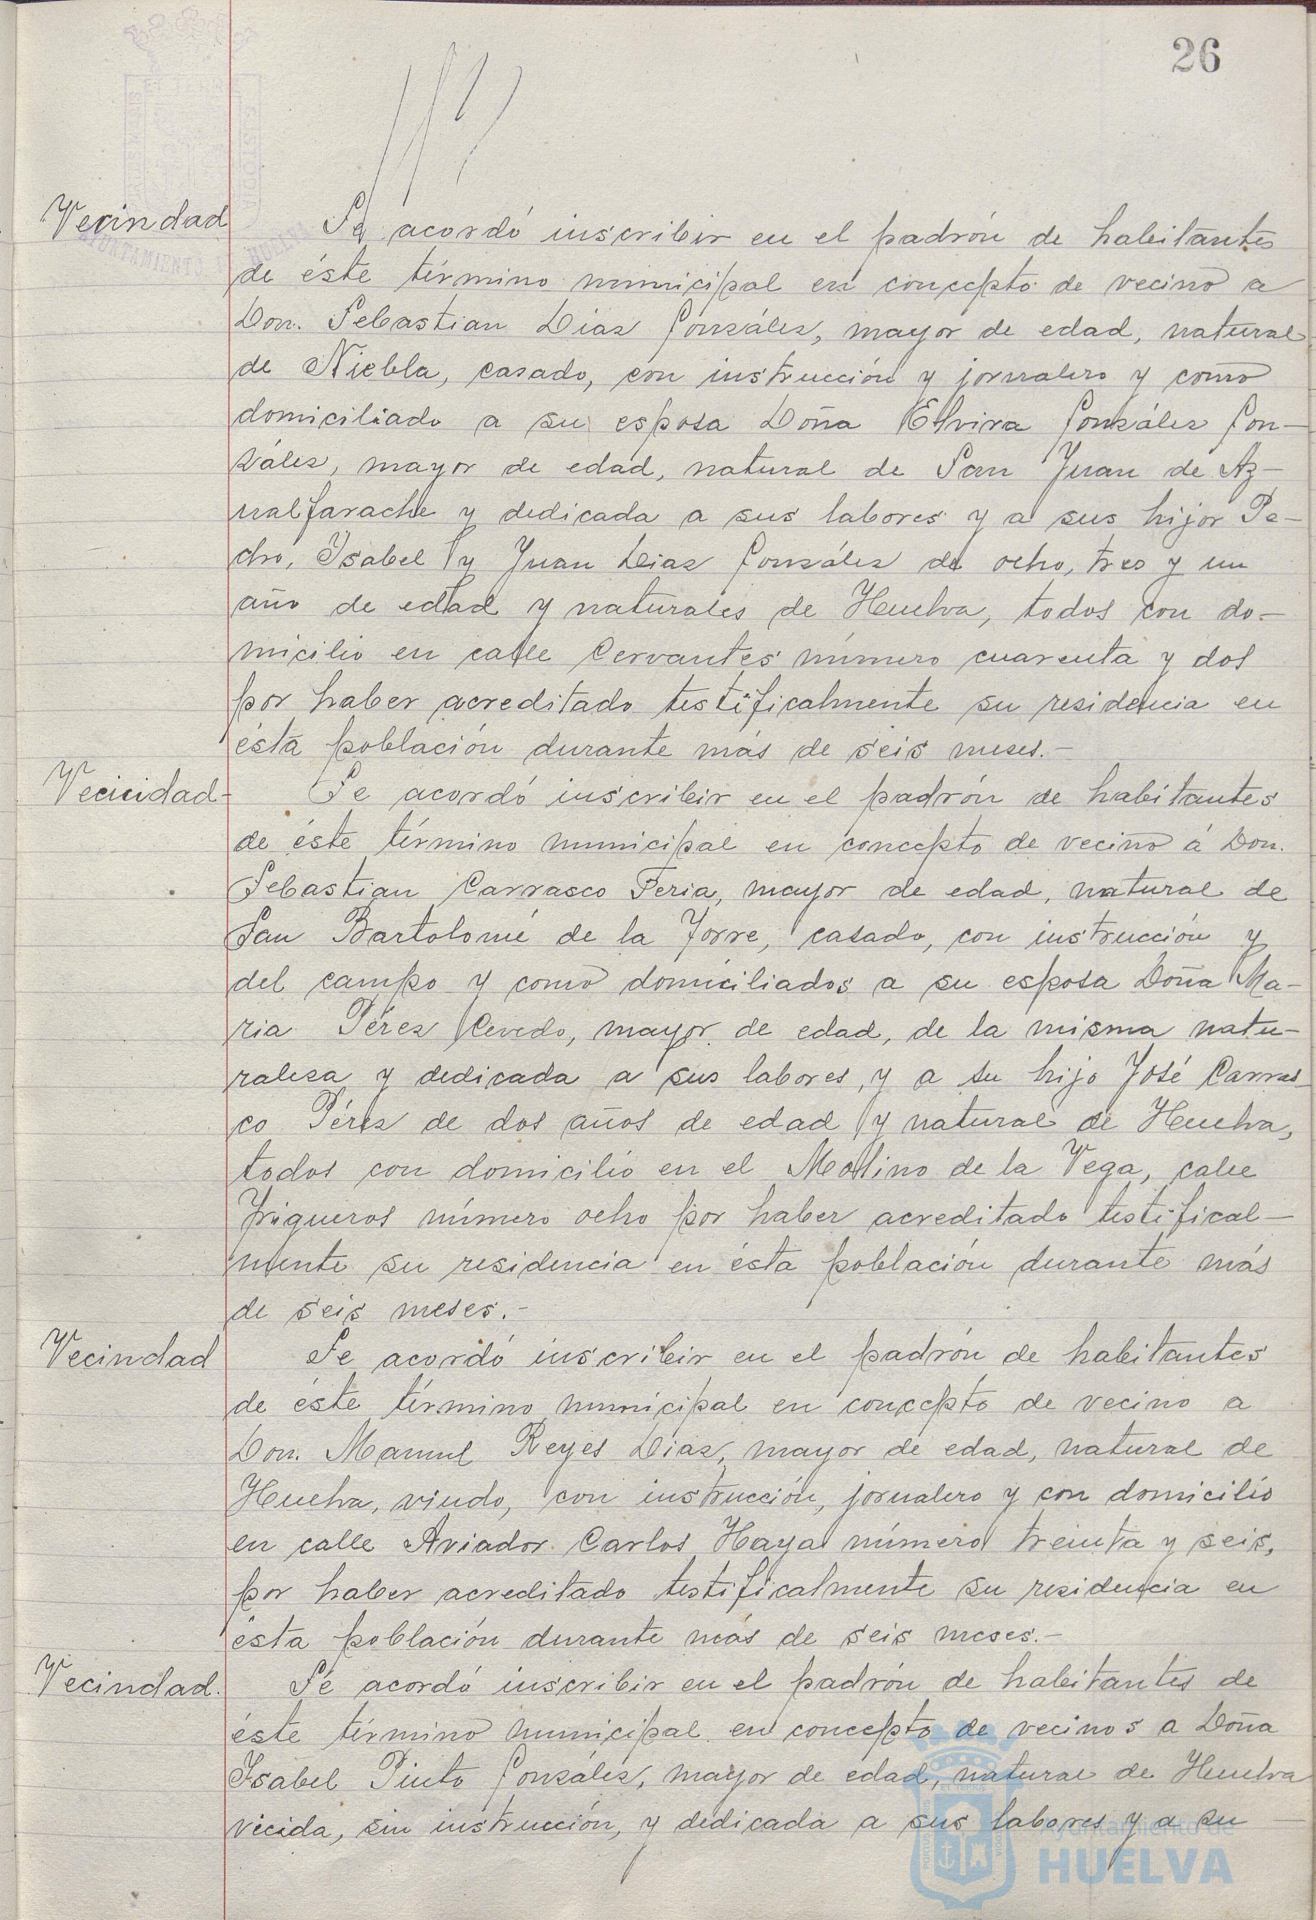 26
Vecindad
Se acordó inscribir en el padrón de habitantes
de éste término municipal en concepto de vecino a
Don. Sebastian Diaz González, mayor de edad, natural
de Niebla, casado, con instrucción y jornalero y como
domiciliado a su esposa Doña Elvira González Gon-
zález, mayor de edad, natural de San Juan de Az-
nalfarache y dedicada a sus labores y a sus hijos Pe-
dro, Isabel y Juan Diaz González de ocho, tres y un
año de edad y naturales de Huelva, todos con do-
micilio en calle Cervantes número cuarenta y dos
por haber acreditado testificalmente su residencia en
ésta población durante más de seis meses.-
Vecindad-
Se acordó inscribir en el padrón de habitantes
de éste término municipal en concepto de vecino á Don.
Sebastian Carrasco Feria, mayor de edad, natural de
San Bartolomé de la Torre, casado, con instrucción y
del campo y como domiciliados a su esposa Doña Ma-
ria Pérez , mayor de edad, de la misma natu-
raleza y dedicada a sus labores, y a su hijo José Carras-
co Pérez de dos años de edad y natural de Huelva,
todos con domicilio en el Molino de la Vega, calle
Trigueros número ocho por haber acreditado testifical-
mente su residencia en ésta población durante más
de seis meses.-
Vecindad
Se acordó inscribir en el padrón de habitantes
de éste término municipal en concepto de vecino a
Don. Manuel Reyes Diaz, mayor de edad, natural de
Huelva, viudo, con instrucción, jornalero y con domicilio
en calle Aviador Carlos Haya número treinta y seis,
por haber acreditado testificalmente su residencia en
ésta población durante más de seis meses.-
Vecindad.
Se acordó inscribir en el padrón de habitantes de
éste término municipal en concepto de vecinos a Doña
Isabel Pinto González, mayor de edad, natural de Huelva
viuda, sin instrucción, y dedicada a sus labores y a su
Ayuntamiento de
HUELVA